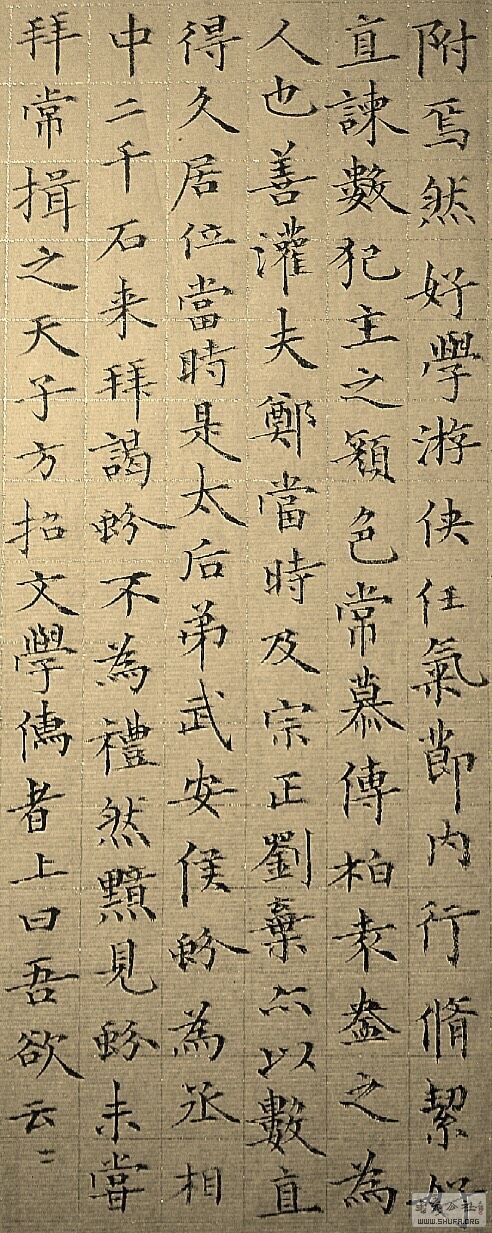 附焉然好學游俠任氣節內行脩絜好
直諫數犯主之顏色常慕傅柏袁盎之為
人也善灌夫鄭當時及宗正劉棄亦以數直
得久居位當時是太后弟武安侯蚡為丞相
中二千石来拜謁蚡不為禮然黯見蚡未嘗
拜常揖之天子方招文學儒者上曰吾欲云〻
WWW.SHUFA.ORG